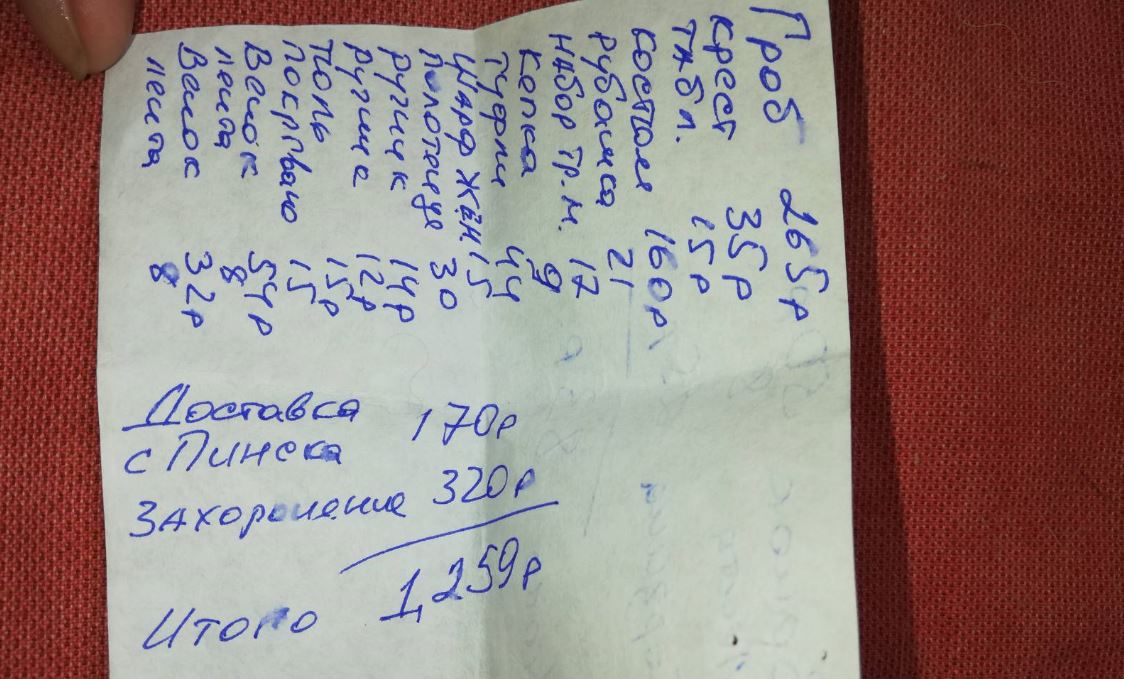 Гроб 265р
крест 35р
табл. 15р
костюм 160р
рубашка 21
набор тр.м. 17
кепка 9
туфли 44
шарф жен. 15
полотенце 30
рушник 14р
12р
тюль 15р
покрывало 15
Венок 54р
лента 8
Венок 32р
лента 8
Доставка
с Пинска 170р
Захоронение 320р
Итого 1,259р